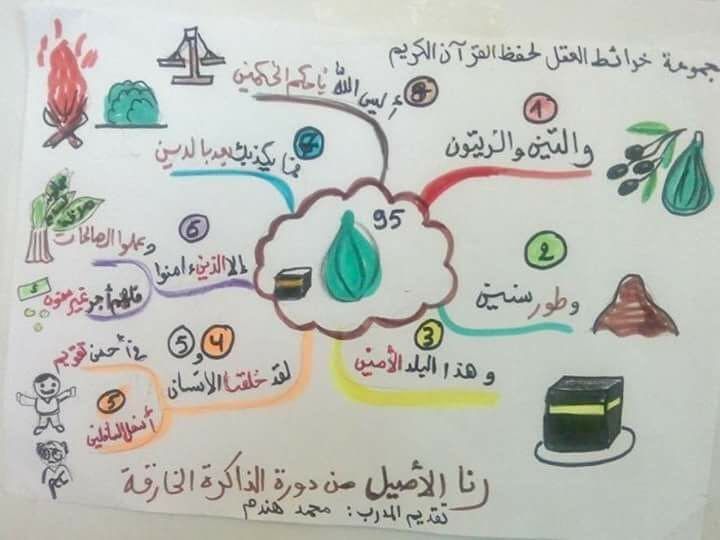 مجموعة خرائط العقل لحفظ القرآن الكريم
95
1
والتين والزيتون
2
وطور سنين
3
وهذا البلد الأمين
4 و 5
لقد خلقنا الإنسان
في أحسن تقويم
5
أسفل السافلين
6
إلا الذين ءامنوا
وعملوا الصالحات
فلهم أجر غير ممنون
7
فما يكذبك بعد بالدين
8
أليس الله بأحكم الحكمين
رنا الأصيل من دورة الذاكرة الخارقة
تقديم المدرب : محمد هندم